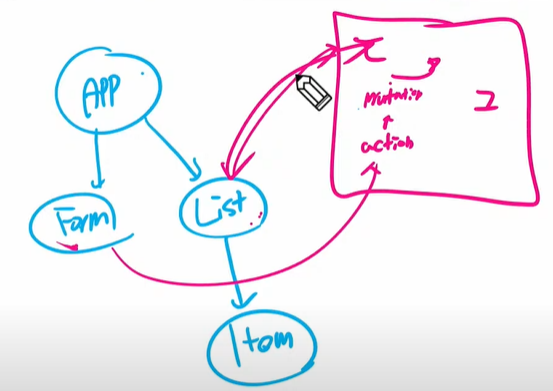 APP
Form
List
Itom
mutation
action
2